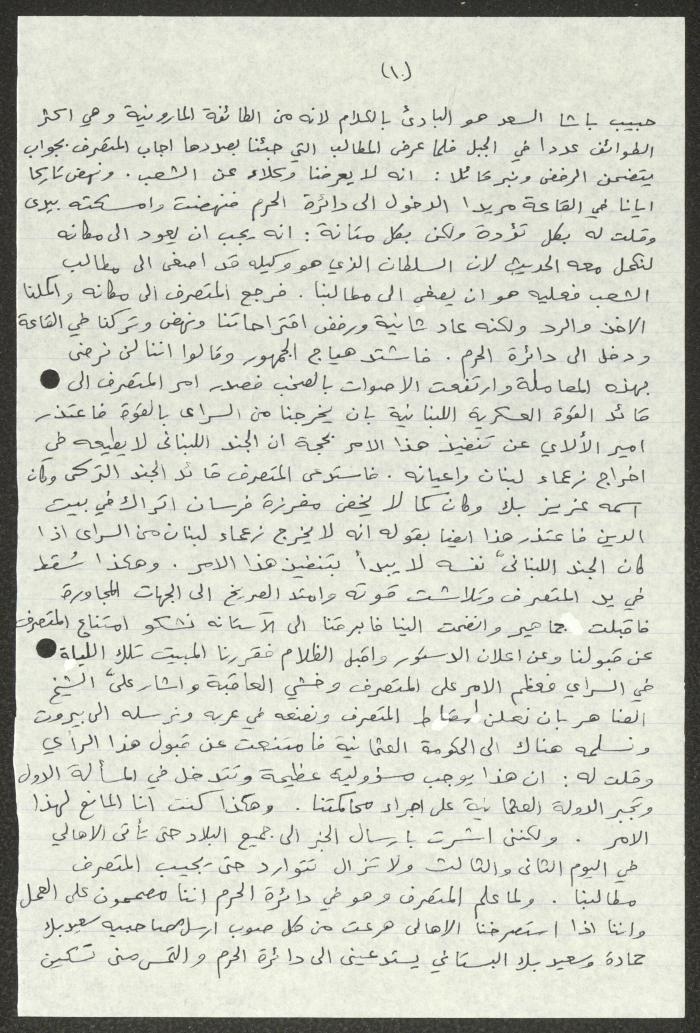 (١٠)
حبيب باشا السعد هو البادئ بالكلام لانه من الطائفة المارونية وهي اكثر
الطوائف عددا في الجبل فلما عرض المطالب التي جئنا بصددها اجاب المتصرف بجواب
يتضمن الرفض ونبر قائلا : انه لا يعرفنا وكلاء عن الشعب . ونهض تاركا
ايانا في القاعة مريدا الدخول الى دائرة الحرم فنهضت وامسكته بيدى
وقلت له بكل تؤدة ولكن بكل متانة : انه يجب ان يعود الى مكانه
لنكمل معه الحديث لان السلطان الذي هو وكيله قد اصغى الى مطالب
الشعب فعليه هو ان يصغي الى مطالبنا . فرجع المتصرف الى مكانه واكملنا
الاخذ والرد ولكنه عاد ثانية ورفض اقتراحاتنا ونهض وتركنا في القاعة
ودخل الى دائرة الحرم . فاشتد هياج الجمهور وقالوا اننا لن نرضى
بهذه المعاملة وارتفعت الاصوات بالصخب فصدر امر المتصرف الى
قائد القوة العسكرية اللبنانية بان يخرجنا من السراى بالقوة فاعتذر
امير الألاي عن تنفيذ هذا الامر بحجة ان الجند اللبنانى لا يطيعه في
اخراج زعماء لبنان واعيانه . فاستدعى المتصرف قائد الجند التركى وكان
اسمه عزيز بك وكان كما لا يخفى مفرزة فرسان اتراك في بيت
الدين فاعتذر هذا ايضا بقوله انه لا يخرج زعماء لبنان من السراى اذا
كان الجند اللبنانىّ نفسه لا يبدأ بتنفيذ هذا الامر . وهكذا سُقط
في يد المتصرف وتلاشت قوته وامتد الصريخ الى الجهات المجاورة
فاقبلت جماهير وانضمت الينا فابرقنا الى الآستانه نشكو امتناع المتصرف
عن قبولنا وعن اعلان الدستور واقبل الظلام فقررنا المبيت تلك الليلة
في السراي فعظم الامر على المتصرف وخشي العاقبة واشار علىّ الشيخ
الفنا هر بان نعلن اسقاط المتصرف ونضعه في عربه ونرسله الى بيروت
ونسلمه هناك الى الحكومة العثمانية فامتنعت عن قبول هذا الرأي
وقلت له : ان هذا يوجب مسؤولية عظيمة وتتدخل في المسألة الدول
وتجبر الدولة العثمانية على اجراء محاكمتنا . وهكذا كنت انا المانع لهذا
الامر . ولكننى اشرت بارسال الخبر الى جميع البلاد حتى تأتى الاهالي
في اليوم الثانى والثالث ولا تزال تتوارد حتى يجيب المتصرف
مطالبنا . ولما علم المتصرف وهو في دائرة الحرم اننا مصممون على العمل
واننا اذا استصرخنا الاهالى هرعت من كل صوب ارسل صاحبيه سعيد بك
حمادة وسعيد بك البستاني يستدعينى الى دائرة الحرم والتمس منى تسكين